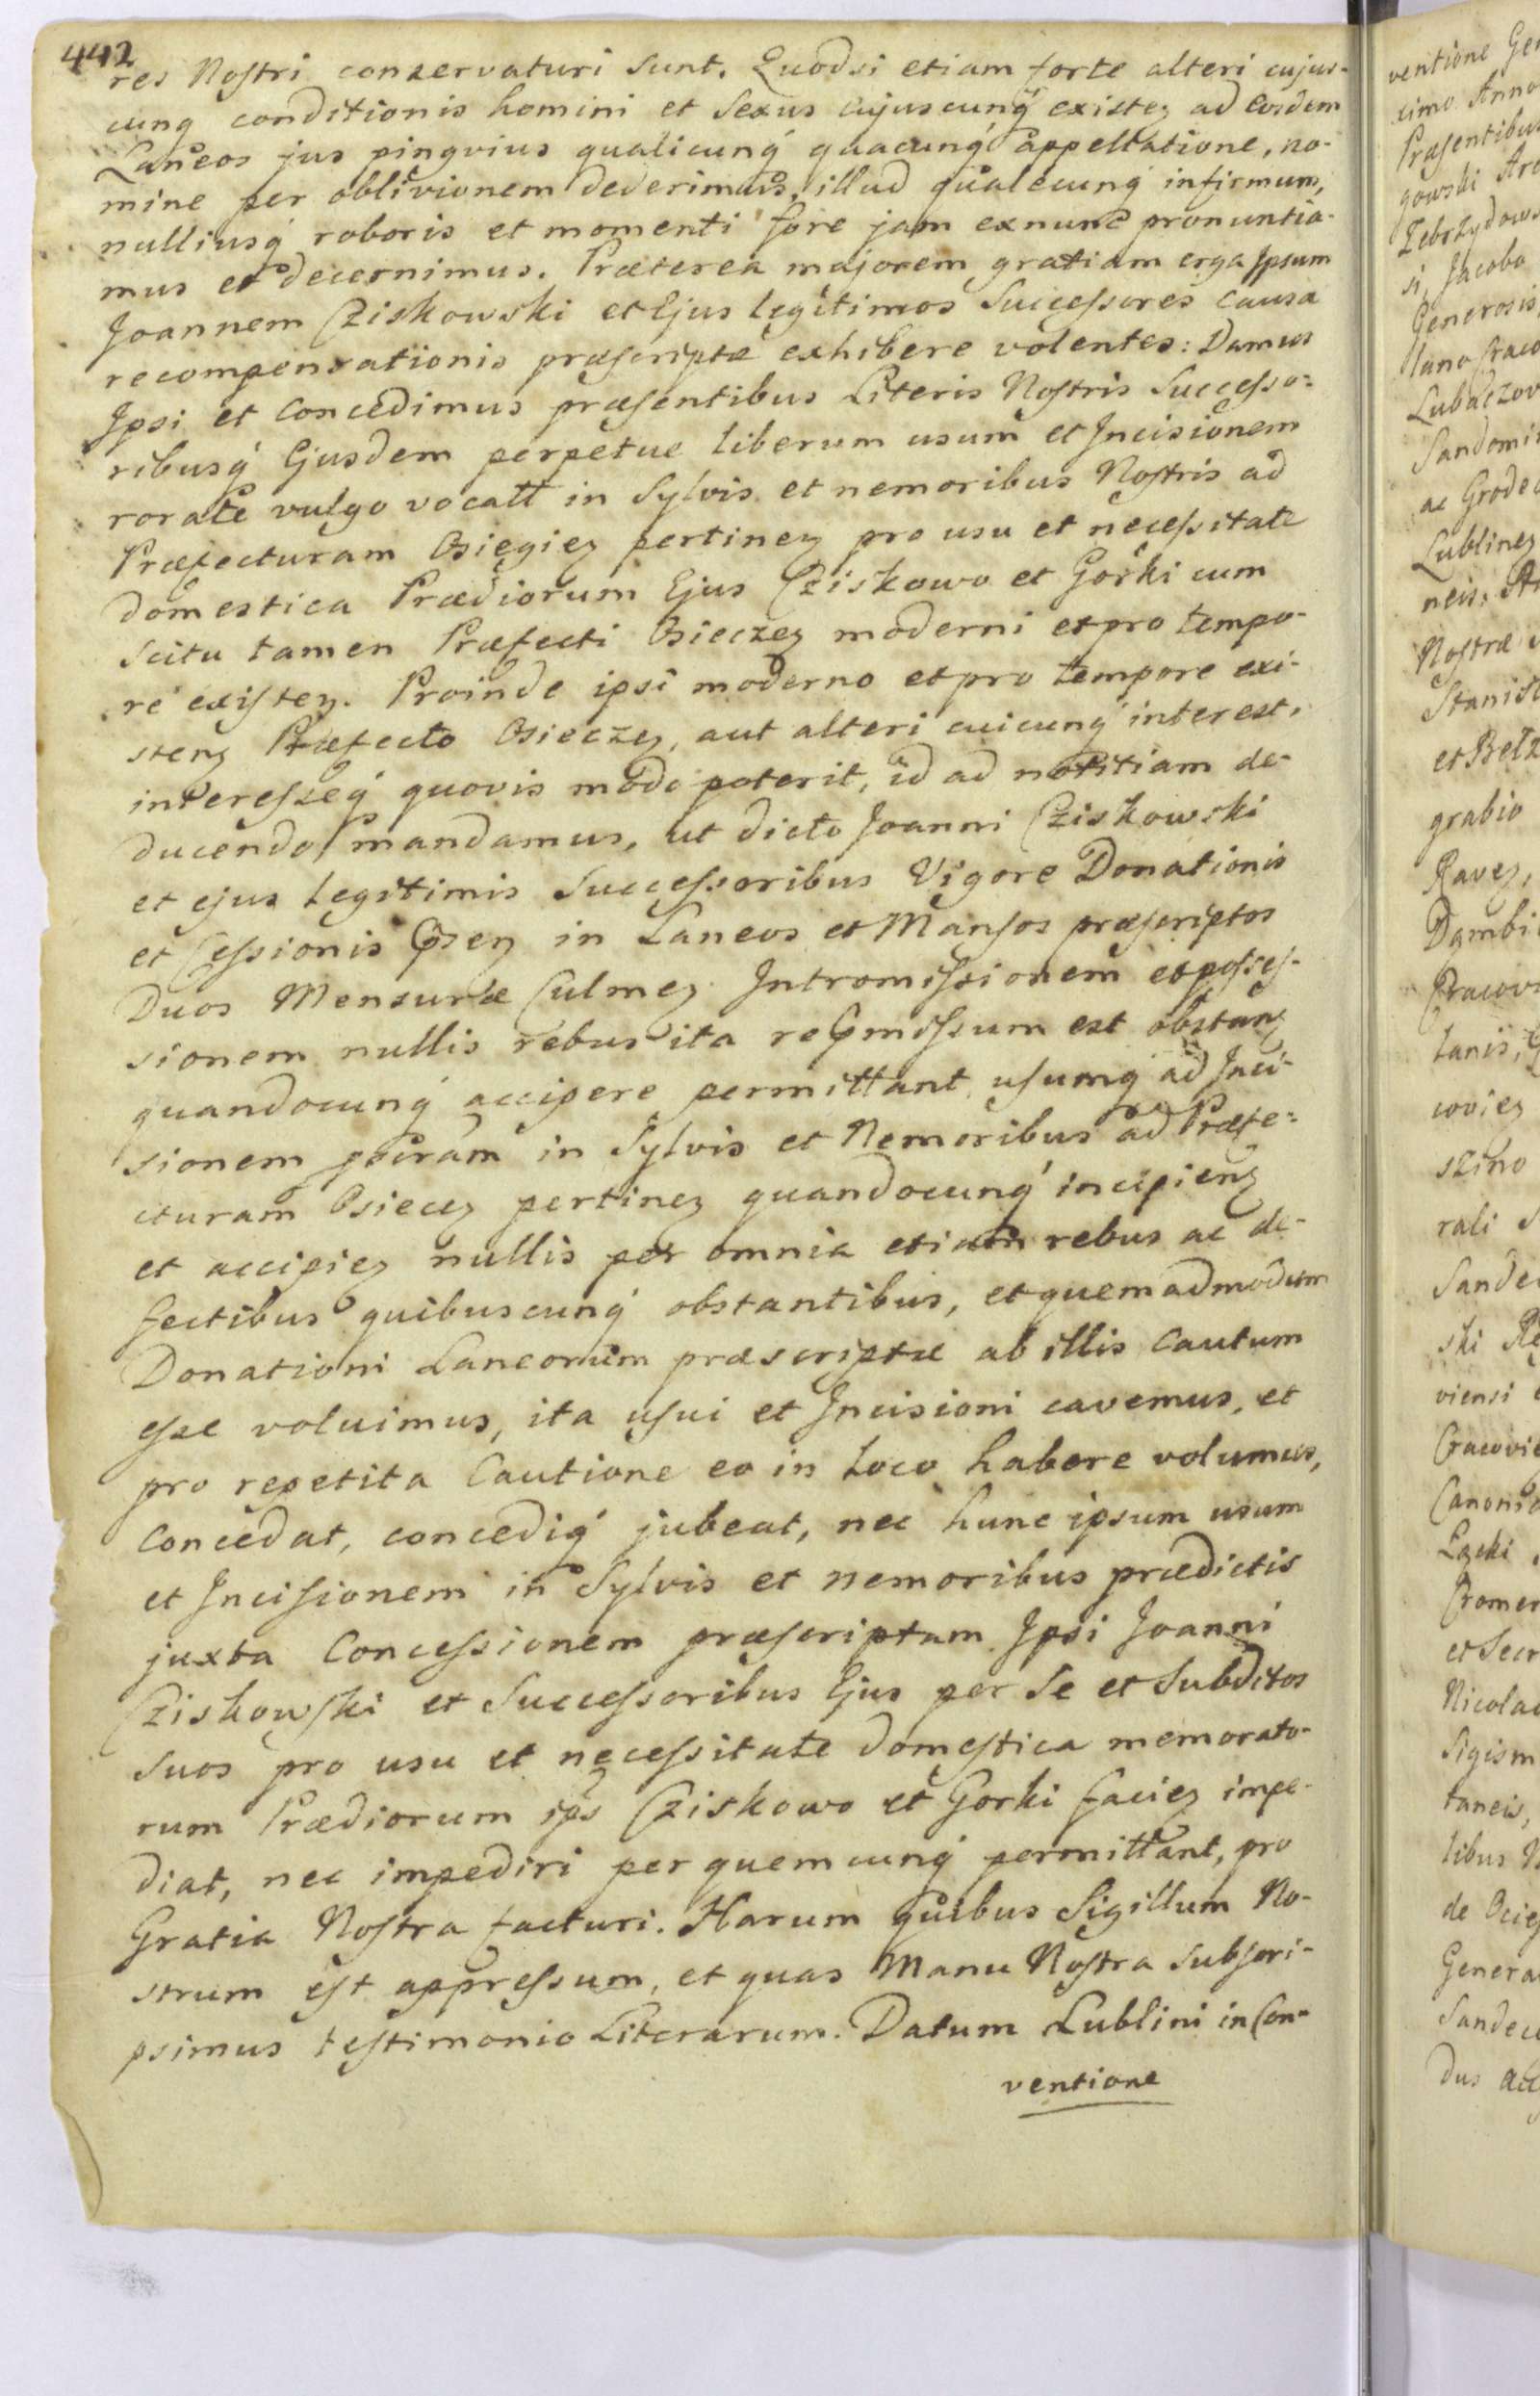 442
res Nostri conservaturi sunt. Quodsi etiam forte alteri cujus-
cunq conditionis homini et Sexus cujuscunq́ existeȝ ad eosdem
Laneos jus pingvius qualicunq́ quacunq́ appellatione, no-
mine per oblivionem dederimus, illud qualecunq́ infirmum,
nulliusq́ roboris et momenti fore jam exnunc pronuntia-
mus et decernimus. Præterea majorem gratiam erga Ipsum
Joannem Cziskowski et Ejus legitimos Successores causa
recompensationis præscriptæ exhibere volentes: Damus
Ipsi et Concedimus præsentibus Literis Nostris Successo-
ribusq́ Ejusdem perpetue liberum usum et Incisionem
rorate vulgo vocatt in Sylvis et nemoribus Nostris ad
Præfecturam Osiegieȝ pertineȝ pro usu et necessitate
domestica Prædiorum Ejus Cziskowo et Gorki cum
scitu tamen Præfecti Osieczeȝ moderni et pro tempo-
re existeȝ. Proinde ipsi moderno et pro tempore exi-
stenȝ Præfecto Osieczeȝ, aut alteri cuicunq́ interest,
interesseq́ quovis modo poterit, id ad notitiam de-
ducendo, mandamus, ut dicto Joanni Cziskowski
et ejus legitimis Successoribus Vigore Donationis
et Cessionis in Laneos et Mansos præscriptos
Duos Mensuræ Culmeȝ Intromissionem et posses-
sionem nullis rebus ita est obstanȝ
quandocunq́ accipere permittant, usumq́ ad Inci-
sionem in Sylvis et Nemoribus ad Præfe-
cturam Osieceȝ pertineȝ quandocunq́ incipienȝ
et accipieȝ nullis per omnia etiam rebus ac de-
fectibus quibuscunq́ obstantibus, et quemadmodum
Donationi Laneorum præscriptæ ab illis Cautum
esse voluimus, ita usui et Incisioni cavemus, et
pro repetita Cautione eo in loco habere volumus,
Concedat, concediq́ jubeat, nec hunc ipsum usum
et Incisionem in Sylvis et nemoribus prædictis
juxta Concessionem præscriptam Ipsi Joanni
Cziskowski et Successoribus Ejus per Se et Subditos
suos pro usu et necessitate domestica memorato-
rum Prædiorum ips Cziskowo et Gorki facieȝ impe-
diat, nec impediri per quemcunq́ permittant, pro
Gratia Nostra facturi. Harum quibus Sigillum No-
strum est appressum, et quas Manu Nostra subscri-
psimus testimonio Literarum. Datum Lublini in Con-
ventione
ventione
ximo Anno
Præsentibus
gowski
Jacobo
Generosis
Nostræ
et Belz
grabio
Raveȝ,
tanis,
rali
viensi
Nicolao
taneis,
dus